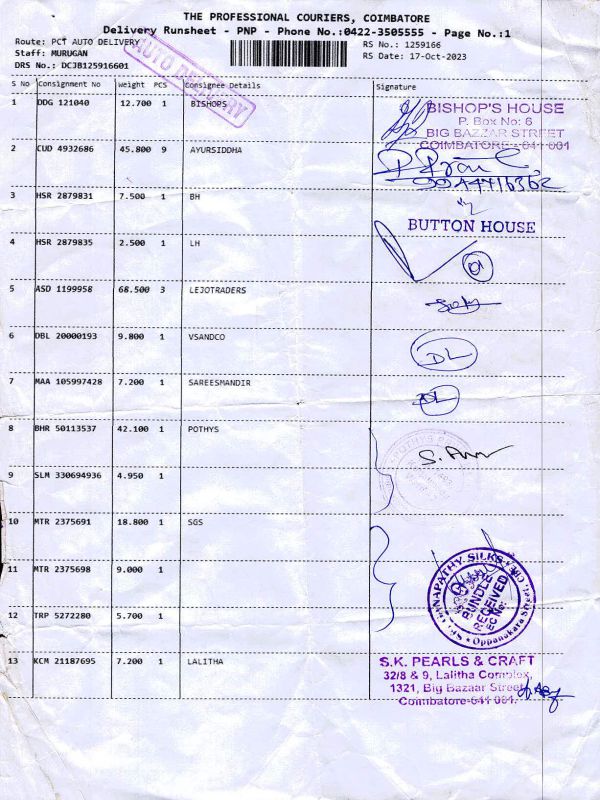 THE PROFESSIONAL COURIERS, COIMBATORE
Delivery Runsheet - PNP - Phone No.:0422-3505555 - Page No.:1
Route: PCT AUTO DELIVERY
Staff: MURUGAN
DRS No.: DCJB125916601
RS No.: 1259166
RS Date: 17-Oct-2023
AUTO DELIVERY
S No Consignment No Weight PCS Consignee Details Signature
1 DDG 121040 12.700 1 BISHOPS
BISHOP'S HOUSE
P. Box No: 6
BIG BAZZAR STREET
COIMBATORE - 641 001
2 CUD 4932686 45.800 9 AYURSIDDHA
3 HSR 2879831 7.500 1 BH
BUTTON HOUSE
4 HSR 2879835 2.500 1 LH
5 ASD 1199958 68.500 3 LEJOTRADERS
6 DBL 20000193 9.800 1 VSANDCO
DL
7 MAA 105997428 7.200 1 SAREESMANDIR
DL
8 BHR 50113537 42.100 1 POTHYS
9 SLM 330694936 4.950 1
10 MTR 2375691 18.800 1 SGS
11 MTR 2375698 9.000 1
12 TRP 5272280 5.700 1
BUNDLE
RECEIVED
13 KCM 21187695 7.200 1 LALITHA
S.K. PEARLS & CRAFT
32/8 & 9, Lalitha Complex,
1321, Big Bazaar Street,
Coimbatore-641 001.